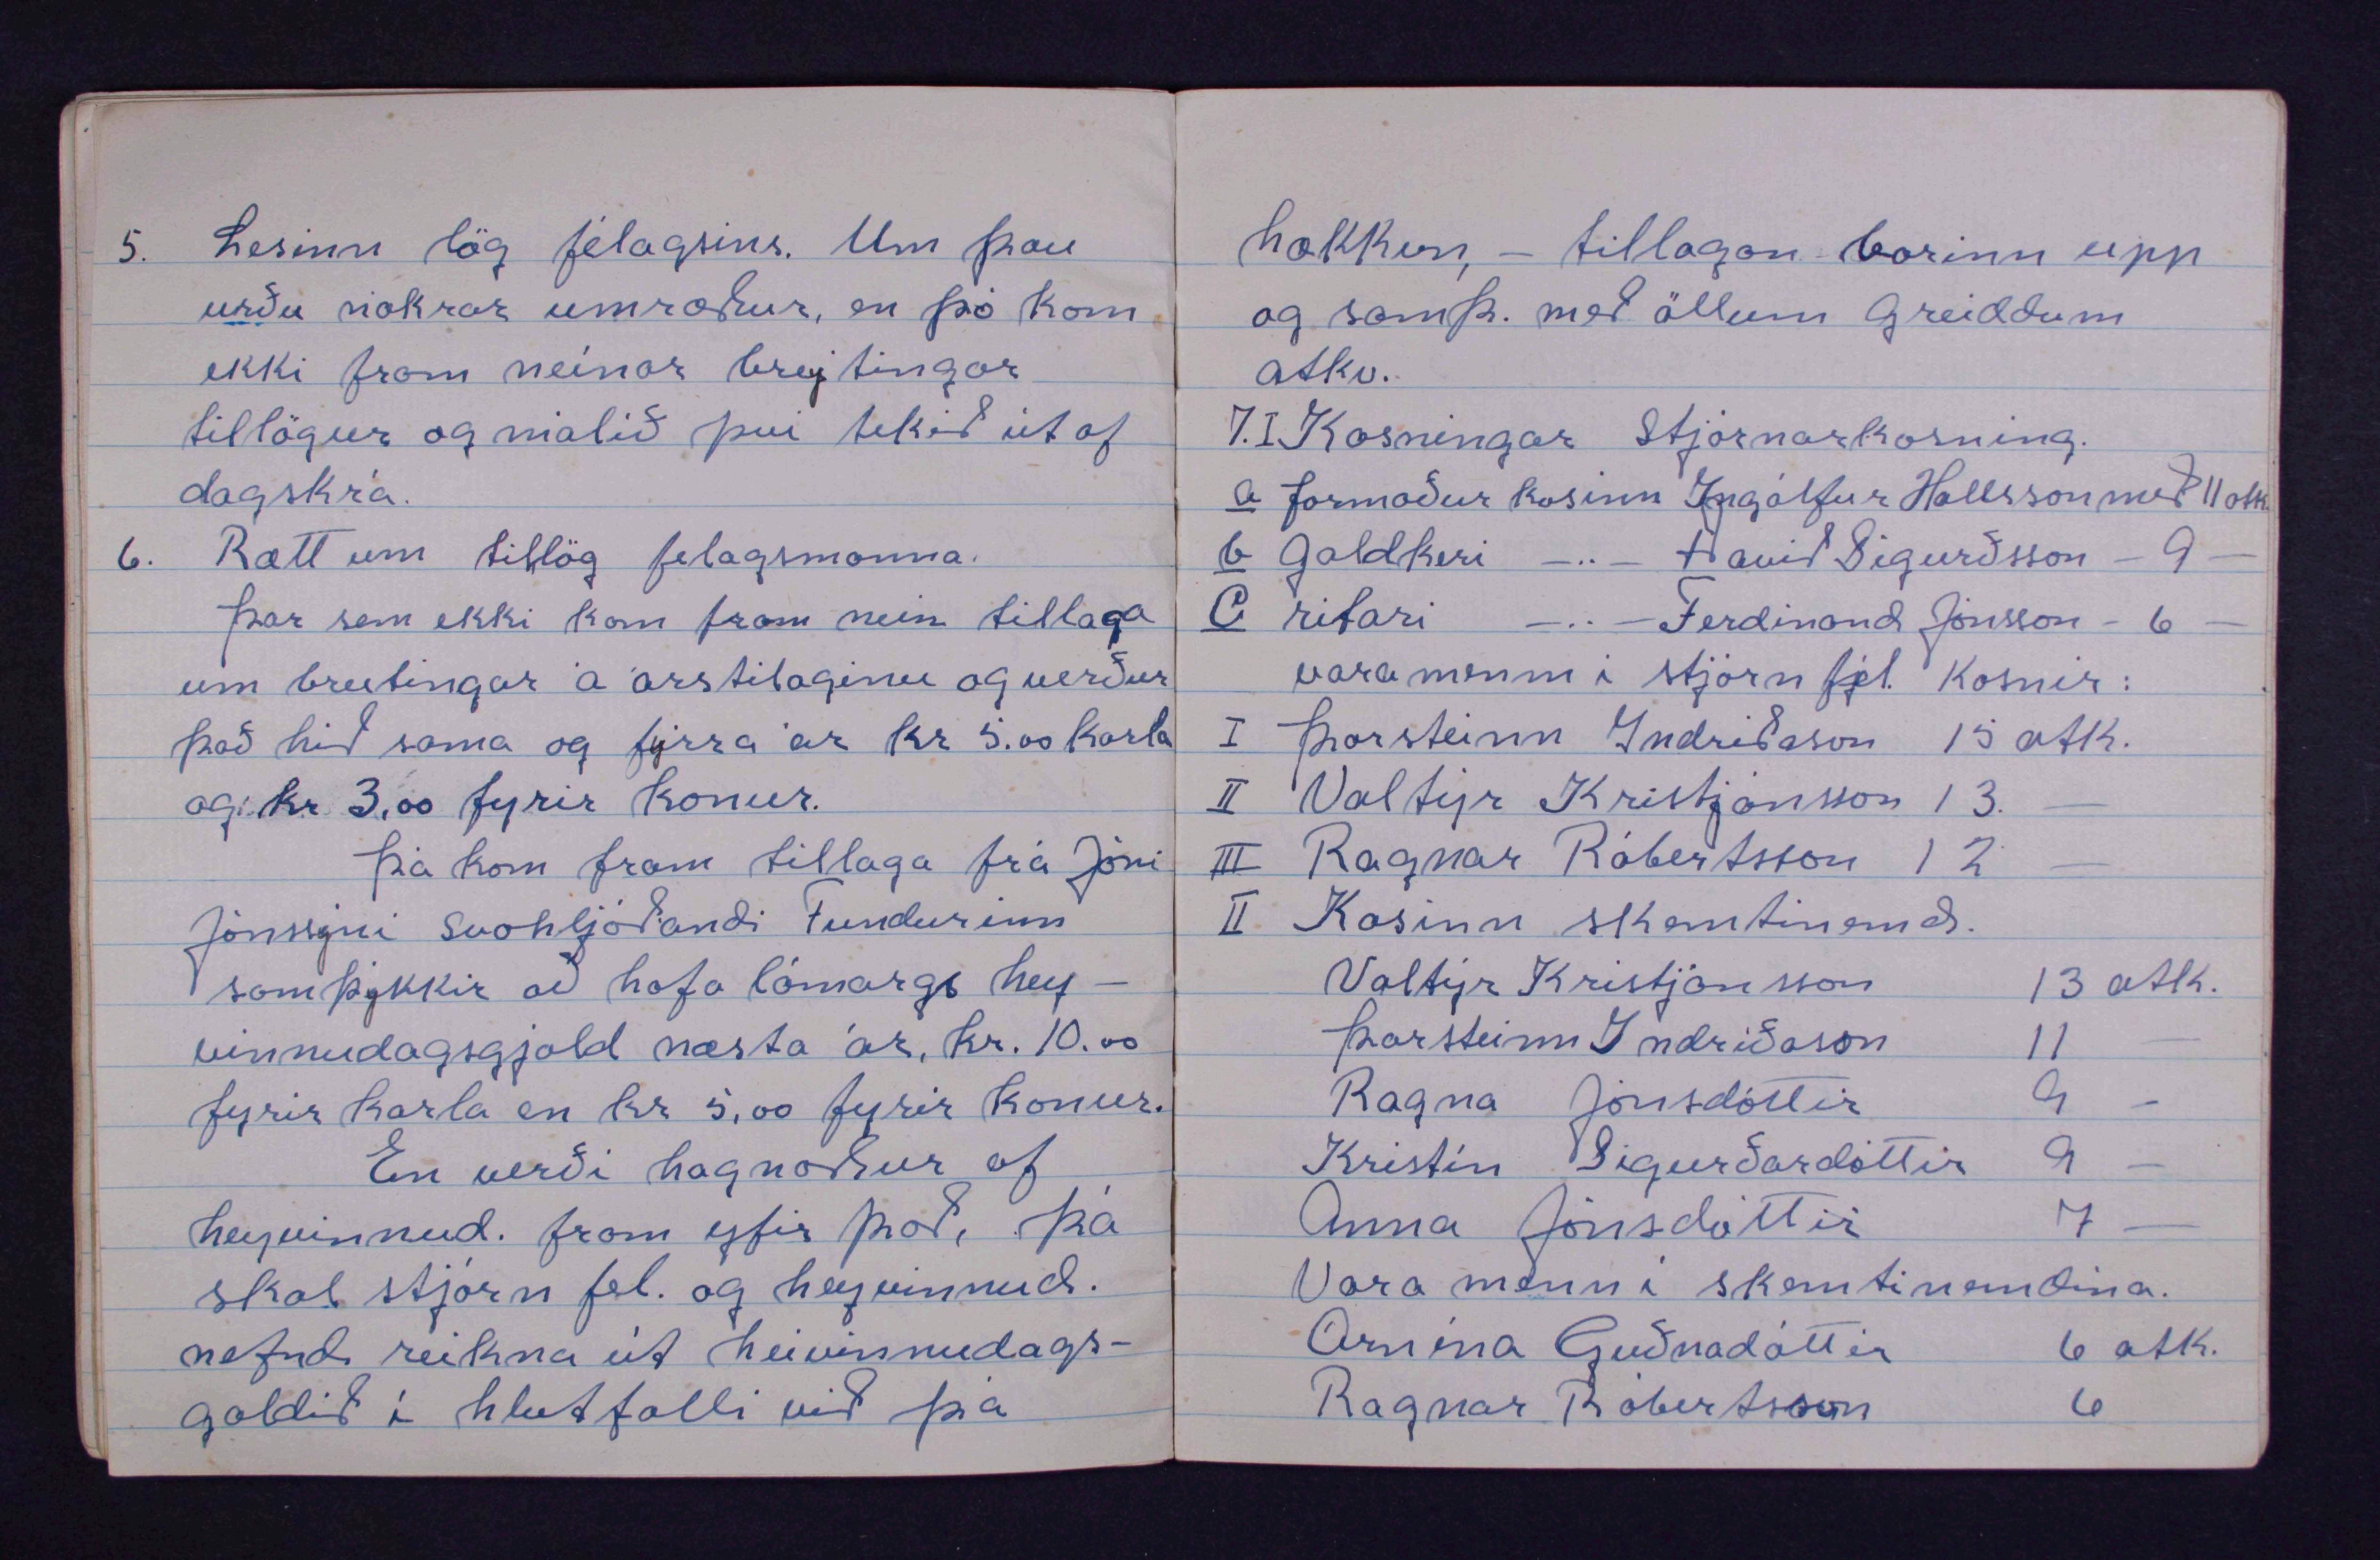 5. Lesinn lög félagsins. Um þau
urðu nokrar umræður, en þó kom
ekki fram neinar breytingar
tillögur og málið þvi tekið út af
dagskrá.
6. Rætt um tillög felagsmanna.
Þar sem ekki kom fram nein tillaga
um breitingar á árstilaginu og verður
það hið sama og fyrra ár kr 5.00 karla
og kr 3,00 fyrir konur.
Þá kom fram tillaga frá Jóni
Jónssyni svohljóðandi Fundurinn
samþykkir að hafa lámargs hey-
vinnudagsgjald næsta ár, kr. 10.00
fyrir karla en kr 5,00 fyrir konur.
En verði hagnaður af
heyvinnud. fram yfir það, þá
skal stjórn fél. og heyvinnud.
nefnd reikna út heivinnudags-
galdið í hlutfalli við þá
hækkun, - tillagan borinn upp
og samþ. með öllum greiddum
atkv.
7. I Kosningar Stjórnarkosning.
a formaður kosinn Ingólfur Hallsson með 11 atk.
b Galdkeri -..- Davið Sigurðsson - 9 -
C ritari -..- Ferdinand Jónsson - 6 -
varamenn i stjórn fél. Kosnir:
I Þorsteinn Indriðason 15 atk.
II Valtýr Kristjánsson 13. -
III Ragnar Róbertsson 12 -
II Kosinn skemtinemd.
Valtýr Kristjánsson 13 atk.
Þorsteinn Indriðason 11 -
Ragna Jónsdóttir 9 -
Kristín Sigurðardóttir 9 -
Anna Jónsdóttir 7 -
Vara menn í skemtinemdina.
Arnína Guðnadóttir 6 atk.
Ragnar Róbertsson 6